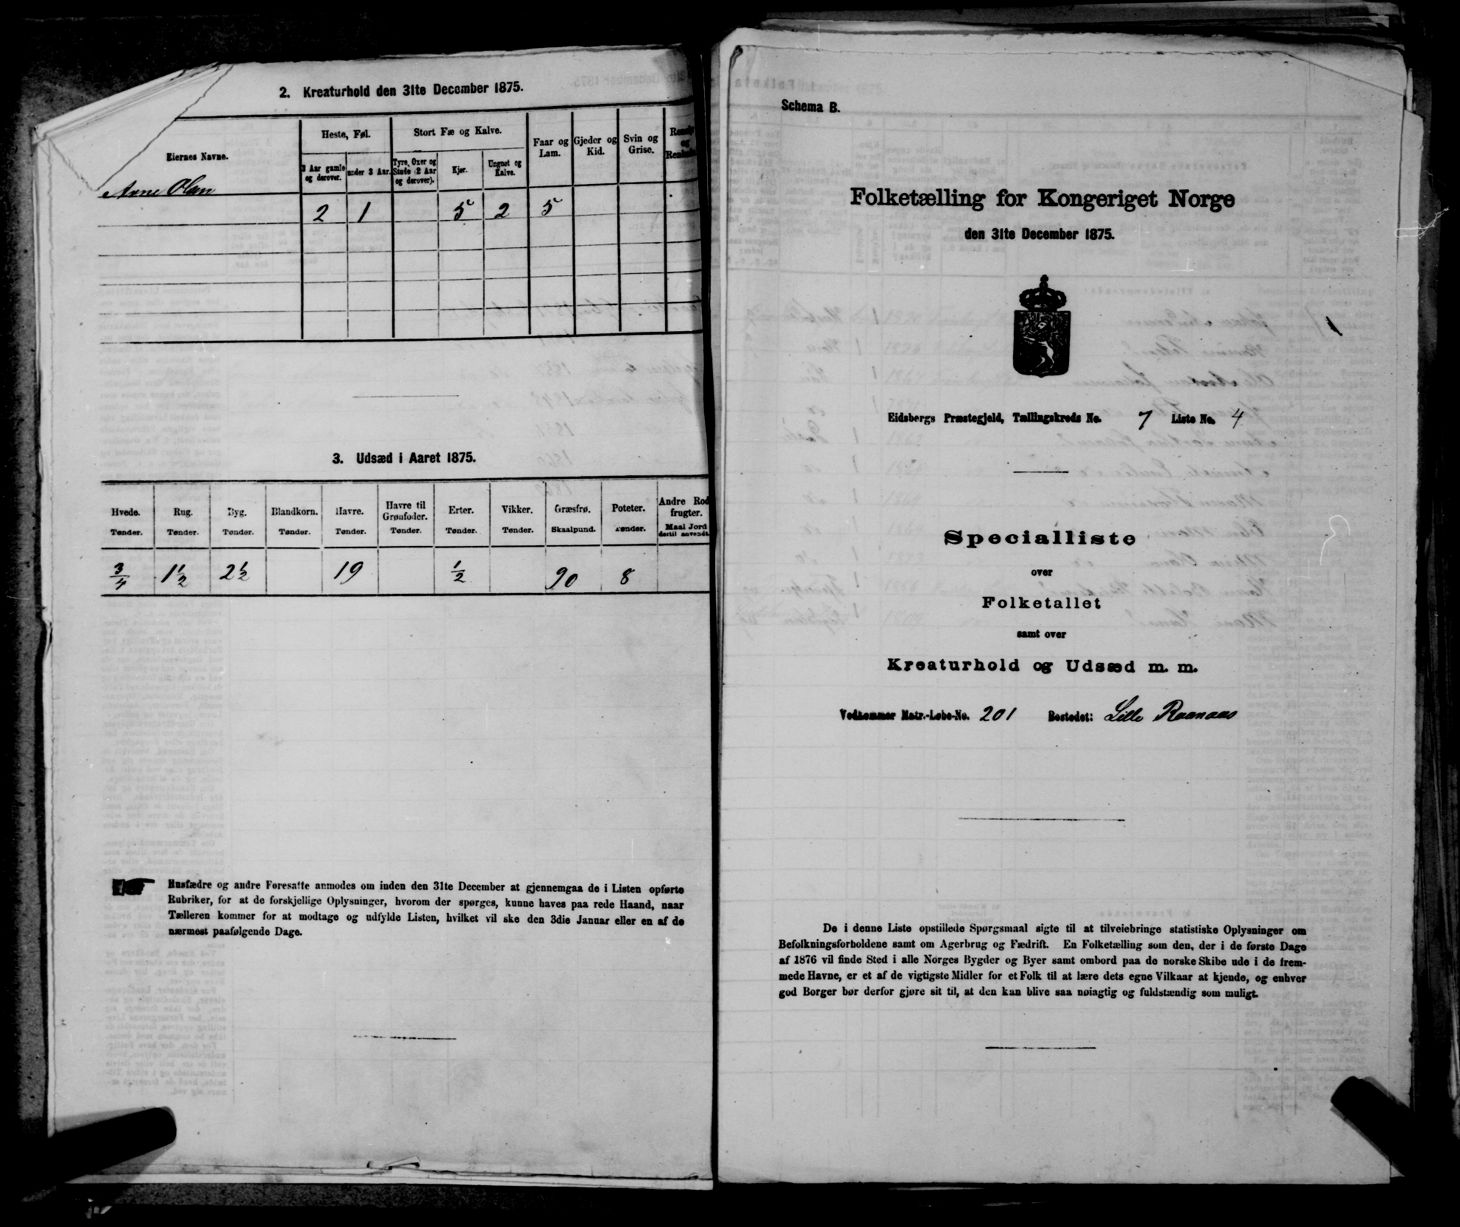 2. Kreaturhold den 31te December 1875.
Eiernes Navne.
Heste, Føl.
Stort Fæ og Kalve.
Faar og Lam.
Gjeder og Kid.
Svin og Grise.
og
3 Aar gamle og derover.
under 3 Aar.
Tyre, Oxer og Stude (2 Aar og derover).
Kjør.
Ungnet og Kalve.
Arne Olsen
2 1 5 2 5
3. Udsæd i Aaret 1875.
Hvede. Rug. Byg. Blandkorn. Havre. Havre til Grønfoder. Erter. Vikker. Græsfrø. Poteter. Andre Rodfrugter.
Tønder. Tønder. Tønder. Tønder. Tønder. Tønder. Tønder. Tønder. Skaalpund. Tønder. Maal Jord dertil anvendt.
3/4 1 1/2 2 1/2 19 1/2 90 8
Husfædre og andre Foresatte anmodes om inden den 31te December at gjennemgaa de i Listen opførte
Rubriker, for at de forskjellige Oplysninger, hvorom der spørges, kunne haves paa rede Haand, naar
Tælleren kommer for at modtage og udfylde Listen, hvilket vil ske den 3die Januar eller en af de
nærmest paafølgende Dage.
Schema B.
Folketælling for Kongeriget Norge
den 31te December 1875.
Eidsbergs Præstegjeld, Tællingskreds No. 7 Liste No. 4
Specialliste
over
Folketallet
samt over
Kreaturhold og Udsæd m. m.
Vedkommer Matr.-Løbe-No. 201 Bostedet: Lille Raanaas
De i denne Liste opstillede Spørgsmaal sigte til at tilveiebringe statistiske Oplysninger om
Befolkningsforholdene samt om Agerbrug og Fædrift. En Folketælling som den, der i de første Dage
af 1876 vil finde Sted i alle Norges Bygder og Byer samt ombord paa de norske Skibe ude i de frem-
mede Havne, er et af de vigtigste Midler for et Folk til at lære dets egne Vilkaar at kjende, og enhver
god Borger bør derfor gjøre sit til, at den kan blive saa nøiagtig og fuldstændig som muligt.